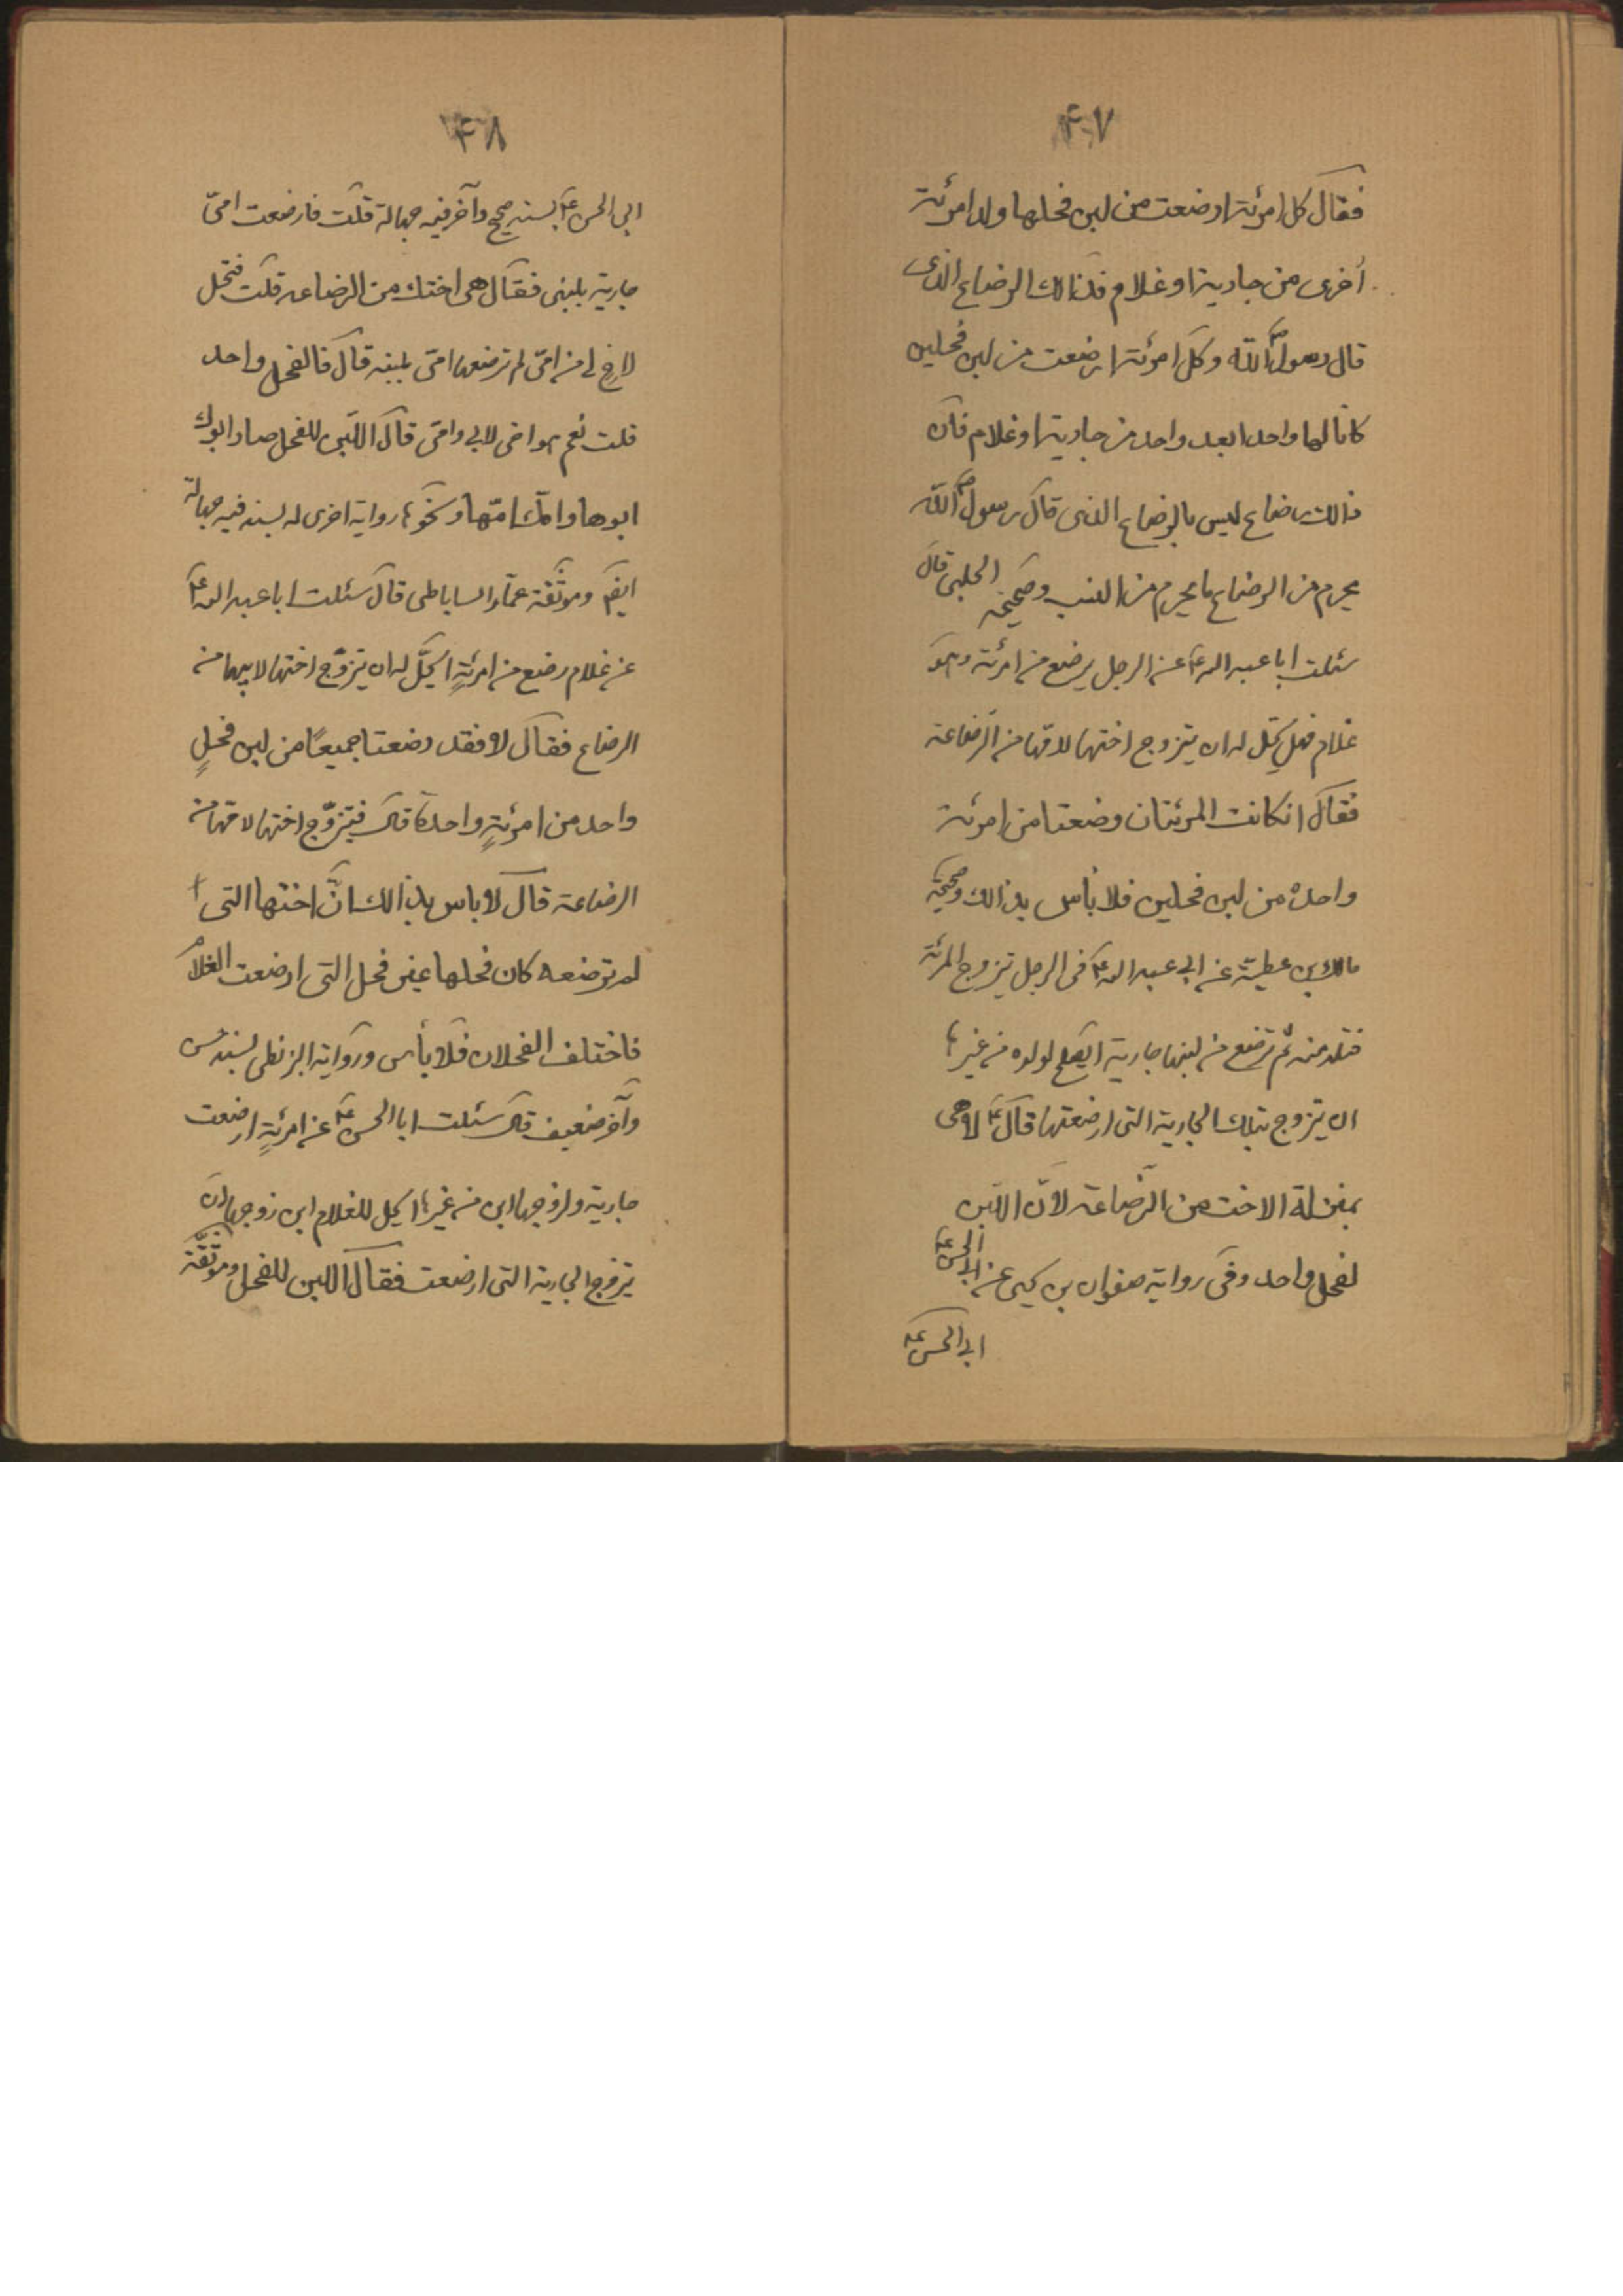 ۴۰۷
فقال كل امرئة ارضعت من لبن فحلها ولد امرئة
أخرى من جارية او غلام فذالك الرضاع الذى
قال رسول الله ص وكل امرئة ارضعت من لبن فحلين
كانا لها واحدا بعد واحد من جارية او غلام فان
ذالك رضاع ليس بالرضاع الذى قال رسول الله ص
يحرم من الرضاع ما يحرم من النسب وصحيحة الحلبى قال
سئلت ابا عبد الله ع عن الرجل يرضع من امرئة وهو
غلام فهل يحل له ان يتزوج اختها لامها من الرضاعة
فقال انكانت المرئتان رضعتا من امرئة
واحدة من لبن فحلين فلا بأس بذالك وصحيحة
مالك بن عطية عن ابى عبد الله ع فى الرجل يتزوج المرئة
فتلد منه ثم ترضع من لبنها جارية ايصلح لولده من غيرها
ان يتزوج بتلك الجارية التى ارضعتها قال ع لا هى
بمنزلة الاخت من الرّضاعة لانّ اللبن
لفحل واحد وفى رواية صفوان بن يحيى عن ابى الحسن ع
ابى الحسن ع
۴۰۸
ابى الحسن ع بسند صحيح وآخر فيه جهالة قلت فارضعت امىّ
جارية بلبنى فقال هى اختك من الرضاعة قلت فتحل
لاخ لى من امّى لم ترضعها امّى بلبنه قال فالفحل واحد
قلت نعم هو اخى لابى وامّى قال اللّبن للفحل صار ابوك
ابوها وامّك امّها ونحوها رواية اخرى له بسند فيه جهالة
ايضً وموثّقة عمّار الساباطى قال سئلت ابا عبد الله ع
عن غلام رضع من امرئةٍ ايحلّ له ان يتزوّج اختها لابيها من
الرضاع فقال لا فقد رضعتا جميعًا من لبن فحلٍ
واحد من امرئةٍ واحدة قال فيتزوّج اختها لامّها من
الرضاعة قال لا باس بذالك انّ اختها التى
لم ترضعه كان فحلها غير فحل التى ارضعت الغلام
فاختلف الفحلان فلا بأس ورواية البزنطى بسند حسن
وآخر ضعيف قال سئلت ابا الحسن ع عن امرئةٍ ارضعت
جارية ولزوجها ابن من غيرها ايحل للغلام ابن زوجها ان
يتزوج الجارية التى ارضعت فقال اللبن للفحل وموثّقة